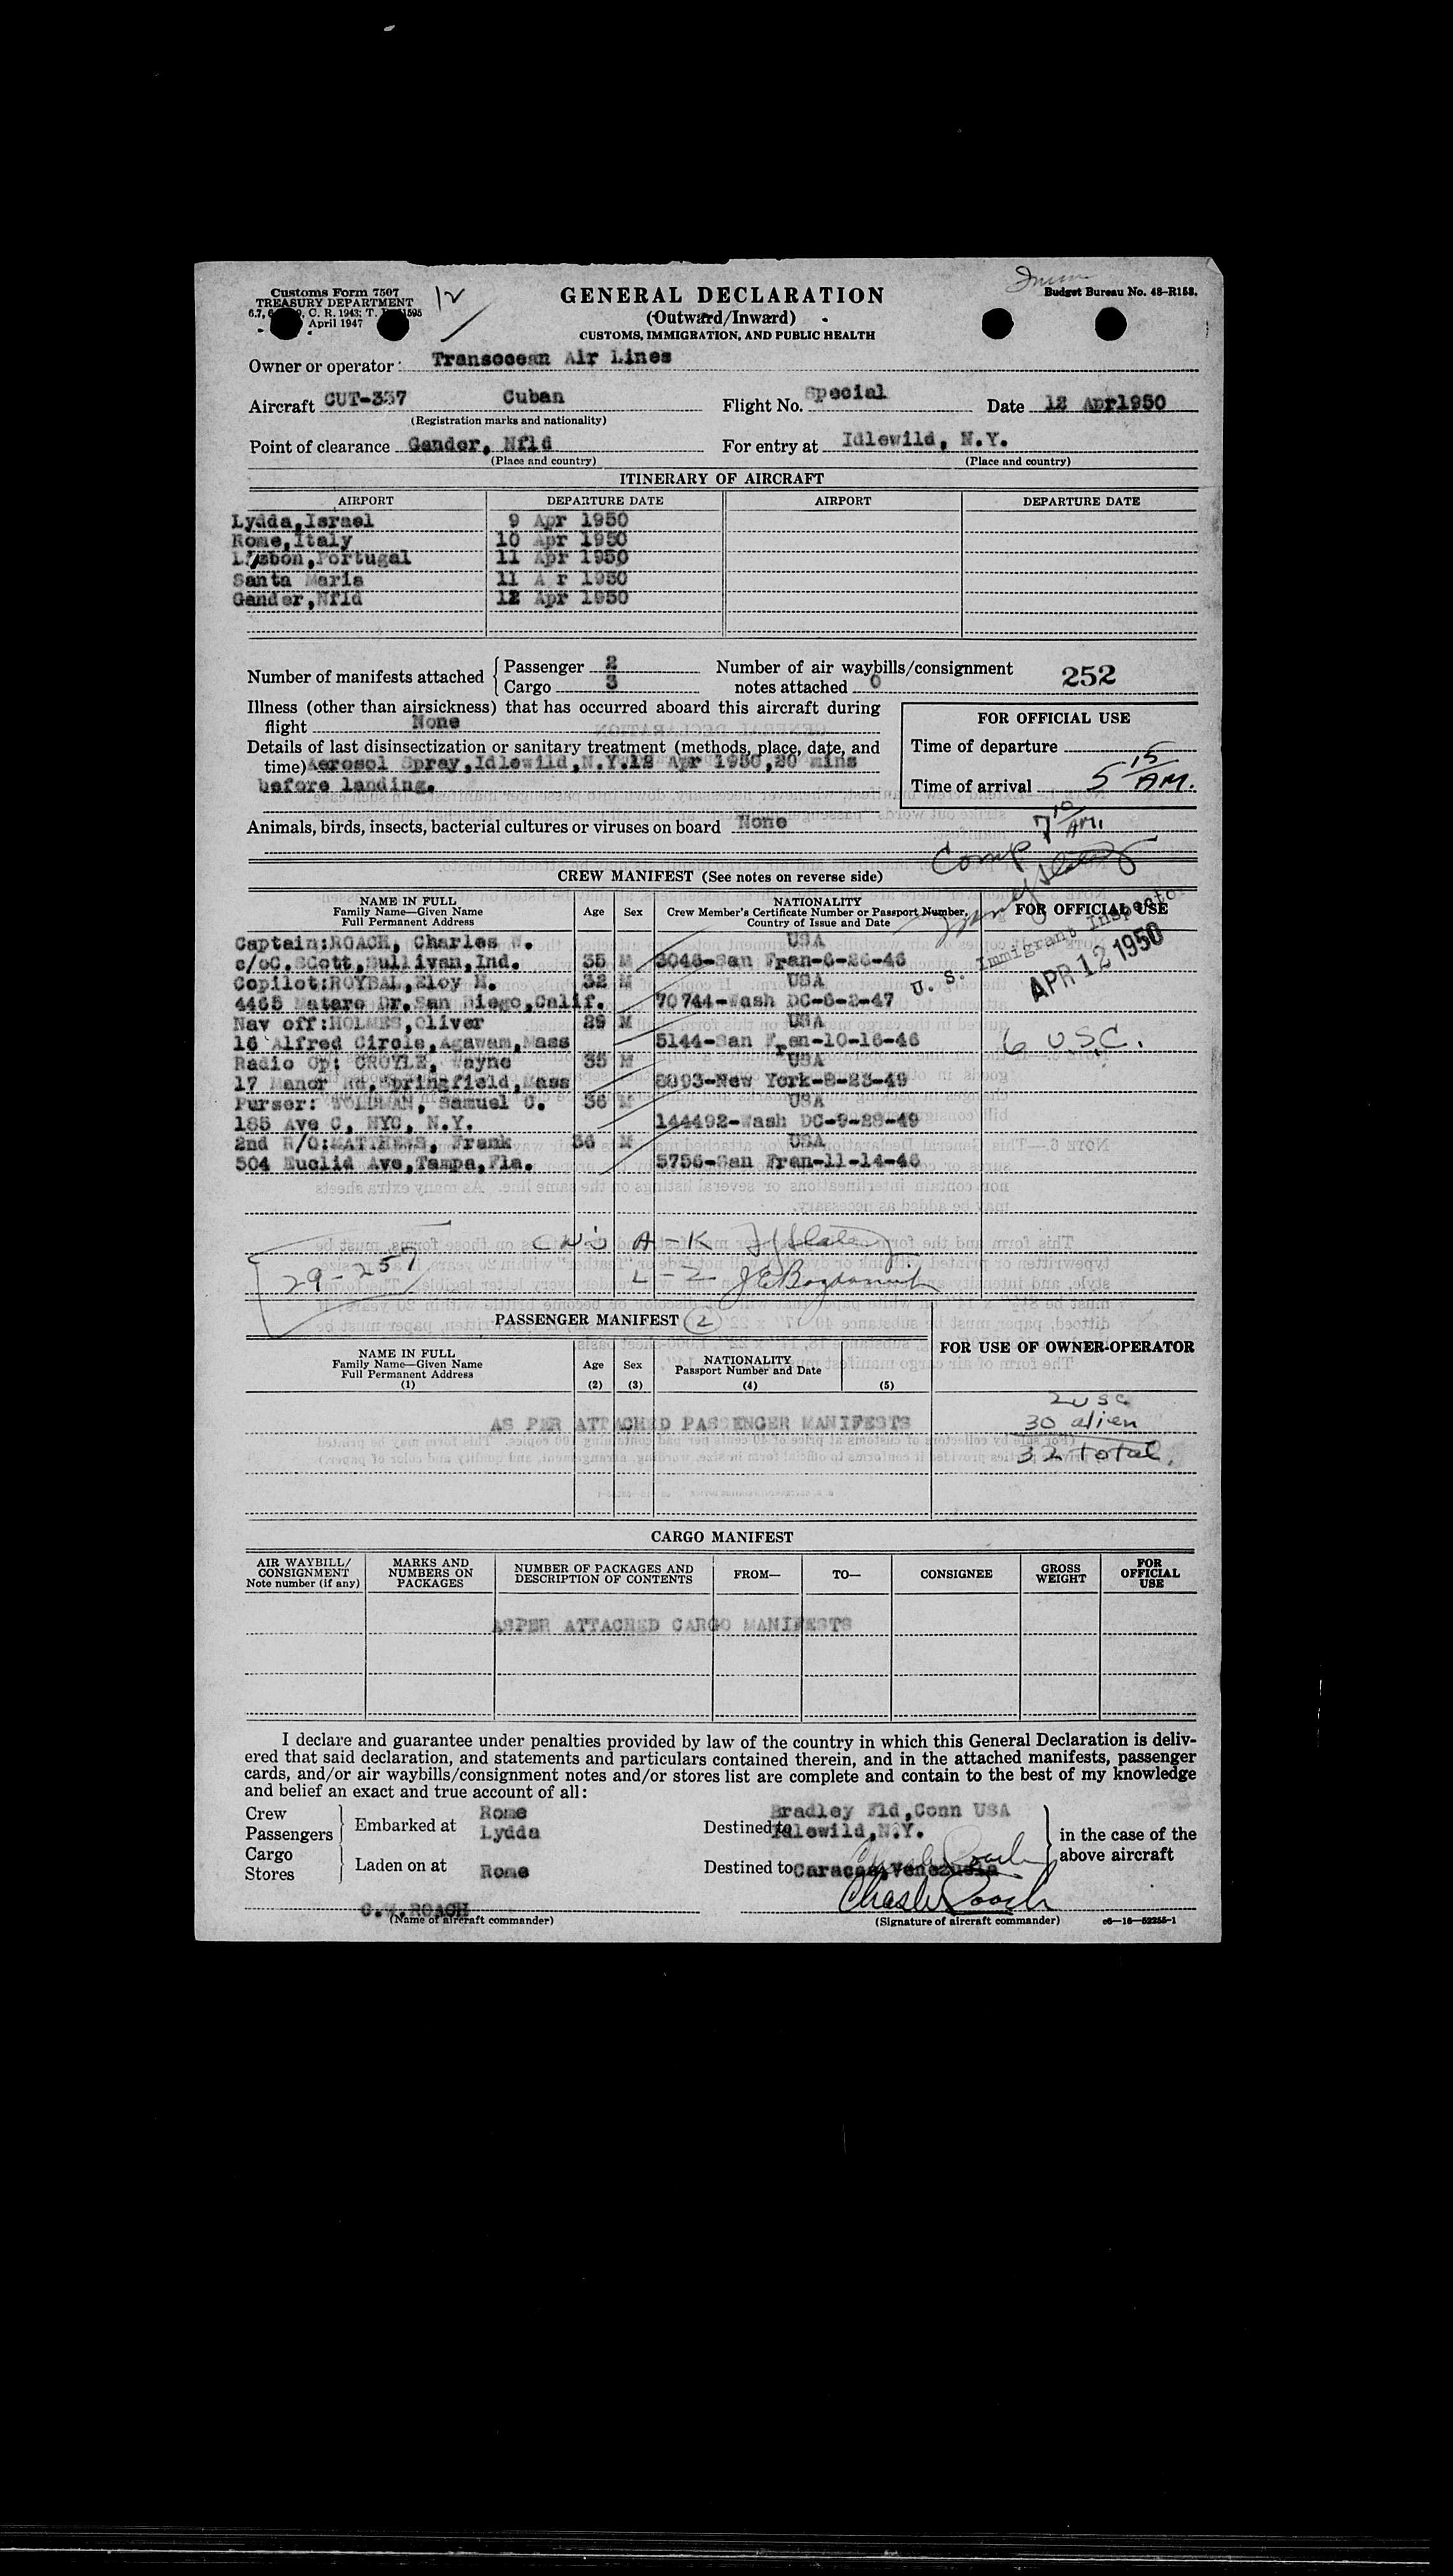 Customs Form 7507
TREASURY DEPARTMENT
C. R. 1943; T.
April 1947
12
GENERAL DECLARATION
(Outward/Inward)
CUSTOMS, IMMIGRATION, AND PUBLIC HEALTH
Budget Bureau No. 48-R158.
Owner or operator: Transocean Air Lines
Aircraft CUT-337 Cuban Flight No. Special Date 12 Apr1950
(Registration marks and nationality)
Point of clearance Gander, Nfld For entry at Idlewild, N.Y.
(Place and country) (Place and country)
ITINERARY OF AIRCRAFT
AIRPORT DEPARTURE DATE AIRPORT DEPARTURE DATE
Lydda,Israel 9 Apr 1950
Rome,Italy 10 Apr 1950
Lisbon,Portugal 11 Apr 1950
Santa Maria 11 A r 1950
Gander,Nfld 12 Apr 1950
Number of manifests attached { Passenger 2 Number of air waybills/consignment 252
Cargo 3 notes attached 0
Illness (other than airsickness) that has occurred aboard this aircraft during
flight None
FOR OFFICIAL USE
Details of last disinsectization or sanitary treatment (methods, place, date, and
time) Aerosol Spray,Idlewild,N.Y.12 Apr 1950,20 mins
before landing.
Time of departure
Time of arrival 5 15 AM.
Animals, birds, insects, bacterial cultures or viruses on board None
7 10 AM.
Comp
CREW MANIFEST (See notes on reverse side)
NAME IN FULL
Family Name—Given Name
Full Permanent Address
Age Sex
NATIONALITY
Crew Member's Certificate Number or Passport Number,
Country of Issue and Date
FOR OFFICIAL USE
U. S. Immigrant Inspector
APR 12 1950
Captain:ROACH, Charles W. USA
c/oC.SCott,Sullivan,Ind. 35 M 3046-San Fran-6-26-46
Copilot:ROYBAL,Eloy M. 32 M USA
4465 Mataro Dr.San Diego,Calif. 70744-Wash DC-6-2-47
Nav off:HOLMES,Oliver 29 M USA
16 Alfred Circle,Agawam,Mass 5144-San Fran-10-16-46
6 U.S.C.
Radio Op: CROYLE, Wayne 35 M USA
17 Manor Rd.Springfield,Mass 8093-New York-8-23-49
Purser: WOLDMAN, Samuel C. 36 M USA
185 Ave C, NYC, N.Y. 144492-Wash DC-9-28-49
2nd R/O:MATTHEWS, Frank 36 M USA
504 Euclid Ave,Tampa,Fla. 5756-San Fran-11-14-46
A-K
29-257
L-Z
PASSENGER MANIFEST 2
NAME IN FULL
Family Name—Given Name
Full Permanent Address
(1)
Age
(2)
Sex
(3)
NATIONALITY
Passport Number and Date
(4) (5)
FOR USE OF OWNER-OPERATOR
2 USC
AS PER ATTACHED PASSENGER MANIFESTS 30 alien
32 total.
CARGO MANIFEST
AIR WAYBILL/
CONSIGNMENT
Note number (if any)
MARKS AND
NUMBERS ON
PACKAGES
NUMBER OF PACKAGES AND
DESCRIPTION OF CONTENTS
FROM— TO— CONSIGNEE
GROSS
WEIGHT
FOR
OFFICIAL
USE
ASPER ATTACHED CARGO MANIFESTS
I declare and guarantee under penalties provided by law of the country in which this General Declaration is deliv-
ered that said declaration, and statements and particulars contained therein, and in the attached manifests, passenger
cards, and/or air waybills/consignment notes and/or stores list are complete and contain to the best of my knowledge
and belief an exact and true account of all:
Crew
Passengers } Embarked at Rome Lydda Destined to Bradley Fld,Conn USA Idlewild,N.Y.
Cargo
Stores } Laden on at Rome Destined to Caracas,Venezuela
in the case of the
above aircraft
Charles Roach
C.W.ROACH Charles Roach
(Name of aircraft commander) (Signature of aircraft commander) c6—16—52255-1